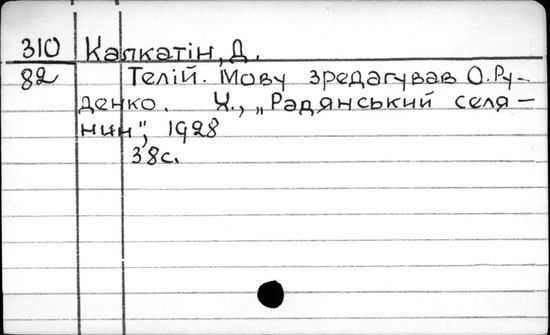 310 Капкатін, Д.
82 Телій. Мову зредагував О. Ру-
денко. Х., „Радянський селя-
нин", 1928
38с.